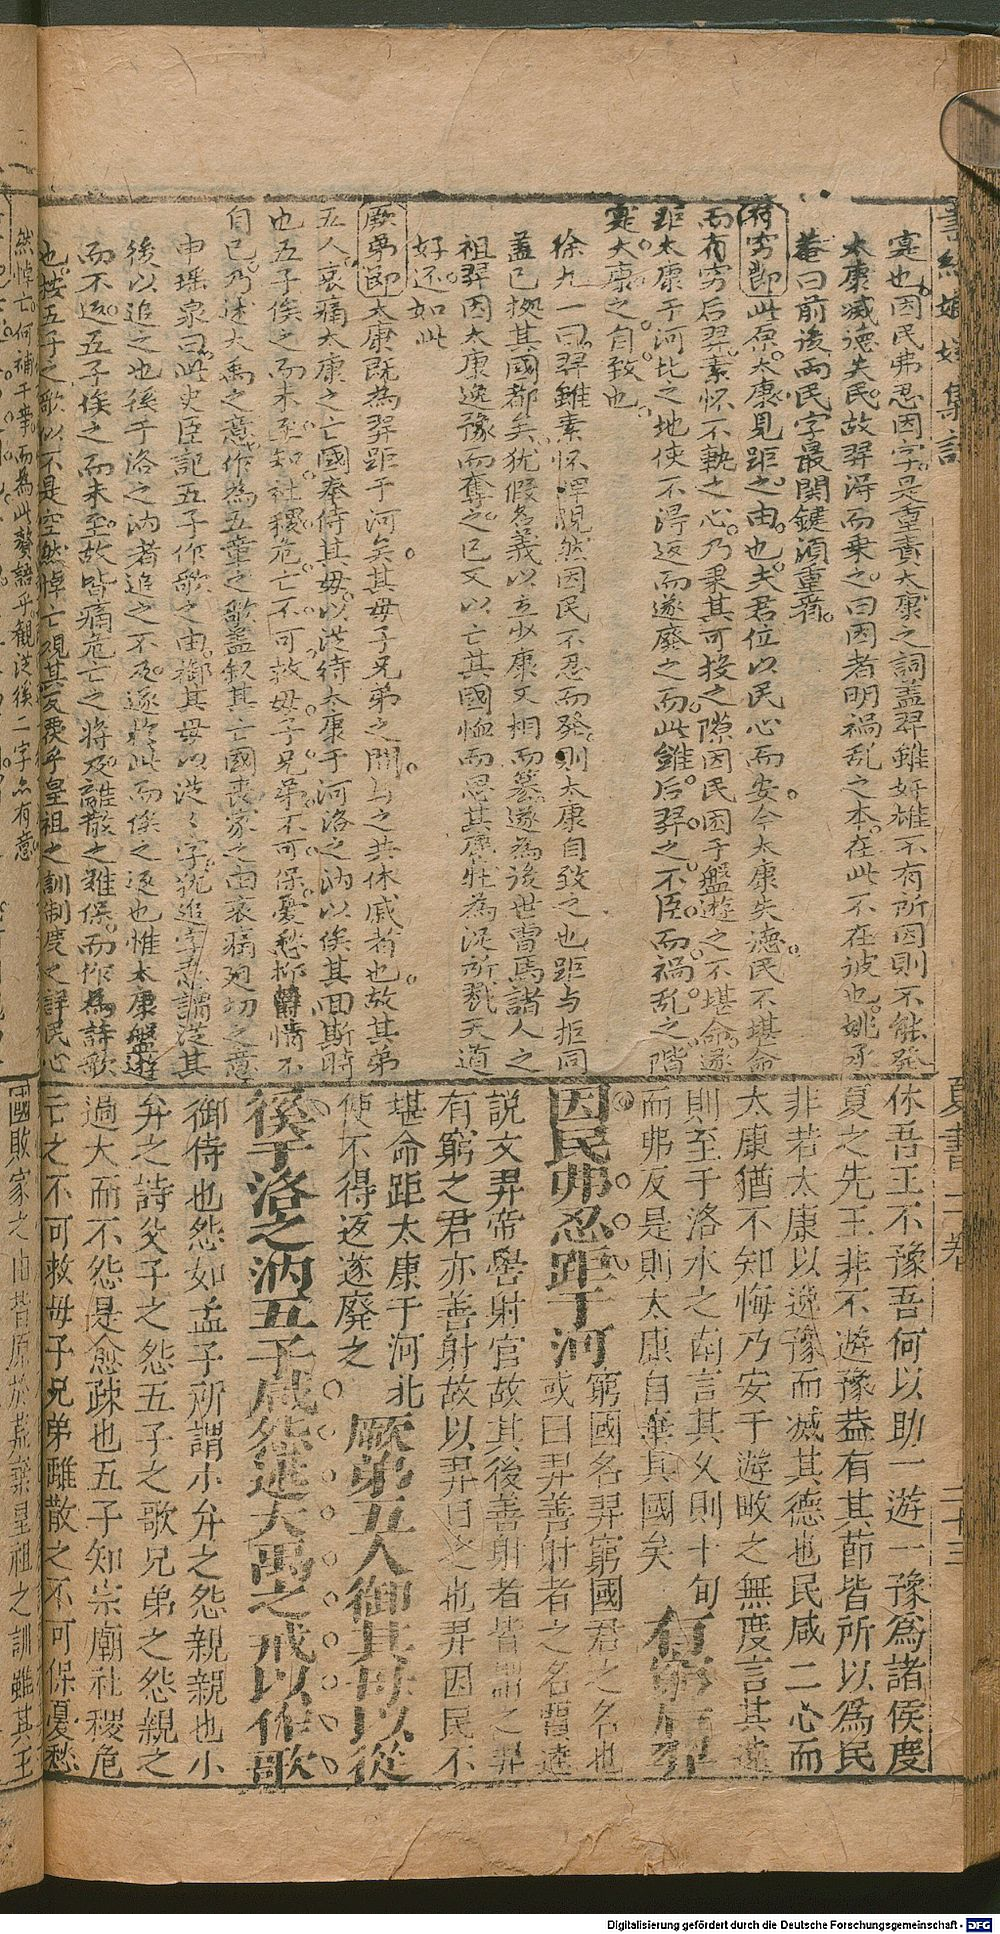 夏書 二卷 二十三
寔也因民弗忍因字是重責太康之詞蓋羿雖奸雄不有所因則不能發
太康滅德失民故羿得而乘之曰因者明禍乱之本在此不在彼也姚承
菴曰前後兩民字最関鍵須重看
有窮節此原太康見距之由也夫君位以民心而安今太康失德民不堪命
而有穷后羿素怀不軌之心乃乘其可投之隙因民困于盤遊之不堪命遂
距太康于河北之地使不得返而遂廢之而此雖后羿之不臣而禍乱之階
寔太康之自致也
徐九一曰羿雖素怀睥睨然因民不忍而發則太康自致之也距与拒同
蓋已拠其國都矣犹假名義以立少康又相而簒遂為後世曹馬諸人之
祖羿因太康逸豫而奪之已又以亡其國恤而思其麀牡為浞所戮天道
好还如此
厥弟節太康既為羿距于河矣其母子兄弟之間与之共休戚者也故其弟
五人哀痛太康之亡國奉侍其母以從待太康于河洛之汭以俟其田斯時
也五子俟之而未至知社稷危亡不可救母子兄弟不可保憂愁抑欝情不
自已乃述大禹之意作為五章之歌蓋叙其亡國喪家之由哀痛廹切之意
申瑤泉曰此史臣記五子作歌之由御其母以從從字犹追字意謂從其
後以追之也後于洛之汭者追之不及遂於此而俟之返也惟太康盤遊
而不返五子俟之而未至故皆痛危亡之將及離散之難保而作為詩歌
也按五子之歌似不是空然悼亡觀其反覆乎皇祖之訓制度之詳民心
休吾王不豫吾何以助一遊一豫爲諸侯度
夏之先王非不遊豫葢有其節皆所以爲民
非若太康以逸豫而滅其德也民咸二心而
太康猶不知悔乃安于遊畋之無度言其遠
則至于洛水之南言其乆則十旬
而弗反是則太康自棄其國矣 有窮后羿
因民弗忍距于河 窮國名羿窮國君之名也
或曰羿善射者之名賈逵
說文羿帝嚳射官故其後善射者皆謂之羿
有窮之君亦善射故以羿目之也羿因民不
堪命距太康于河北
使不得返遂廢之 厥弟五人御其母以從
徯于洛之汭五子咸怨述大禹之戒以作歌
御侍也怨如孟子所謂小弁之怨親親也小
弁之詩父子之怨五子之歌兄弟之怨親之
過大而不怨是愈疎也五子知宗廟社稷危
亡之不可救母子兄弟離散之不可保憂愁
然悼亡何補于事而為此贅語乎觀從後二字亦有意
國敗家之由皆原於荒棄皇祖之訓雖其五
Digitalisierung gefördert durch die Deutsche Forschungsgemeinschaft - DFG